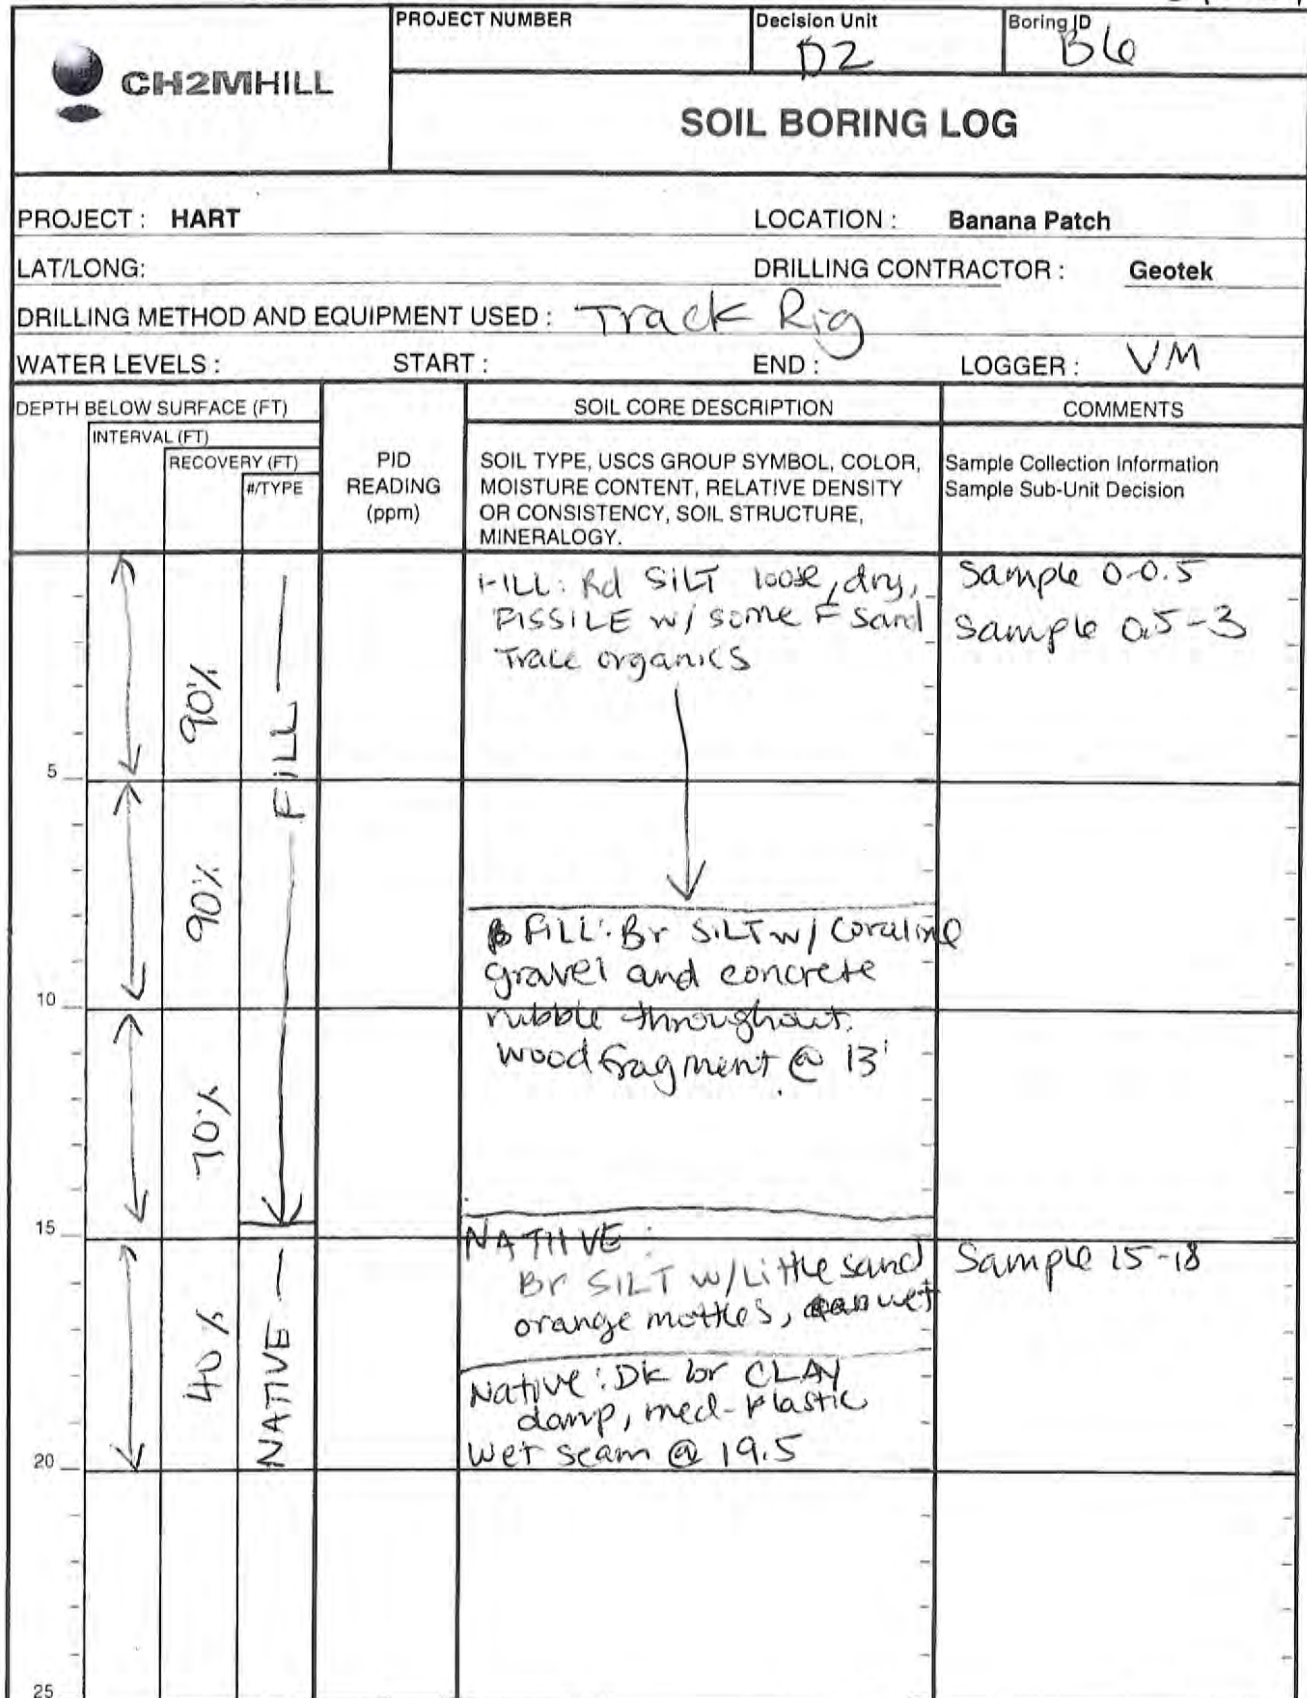 PROJECT NUMBER
Decision Unit
D2
Boring ID
B6
CH2MHILL
SOIL BORING LOG
PROJECT : HART
LOCATION : Banana Patch
LAT/LONG:
DRILLING CONTRACTOR : Geotek
DRILLING METHOD AND EQUIPMENT USED : Track Rig
WATER LEVELS : START : END : LOGGER : VM
DEPTH BELOW SURFACE (FT)
INTERVAL (FT)
RECOVERY (FT)
#/TYPE
PID
READING
(ppm)
SOIL CORE DESCRIPTION
SOIL TYPE, USCS GROUP SYMBOL, COLOR,
MOISTURE CONTENT, RELATIVE DENSITY
OR CONSISTENCY, SOIL STRUCTURE,
MINERALOGY.
COMMENTS
Sample Collection Information
Sample Sub-Unit Decision
FILL: Rd SILT loose, dry,
FISSILE w/ some F sand
Trace organics
Sample 0-0.5
Sample 0.5-3
90%
FILL
5
90%
FILL: Br SILT w/ Coraline
gravel and concrete
rubble throughout.
wood fragment @ 13'
10
70%
15
NATIIVE:
Br SILT w/ Little sand
orange mottles, wet
Sample 15-18
40%
NATIVE
Native: Dk br CLAY
damp, med-plastic
Wet seam @ 19.5
20
25